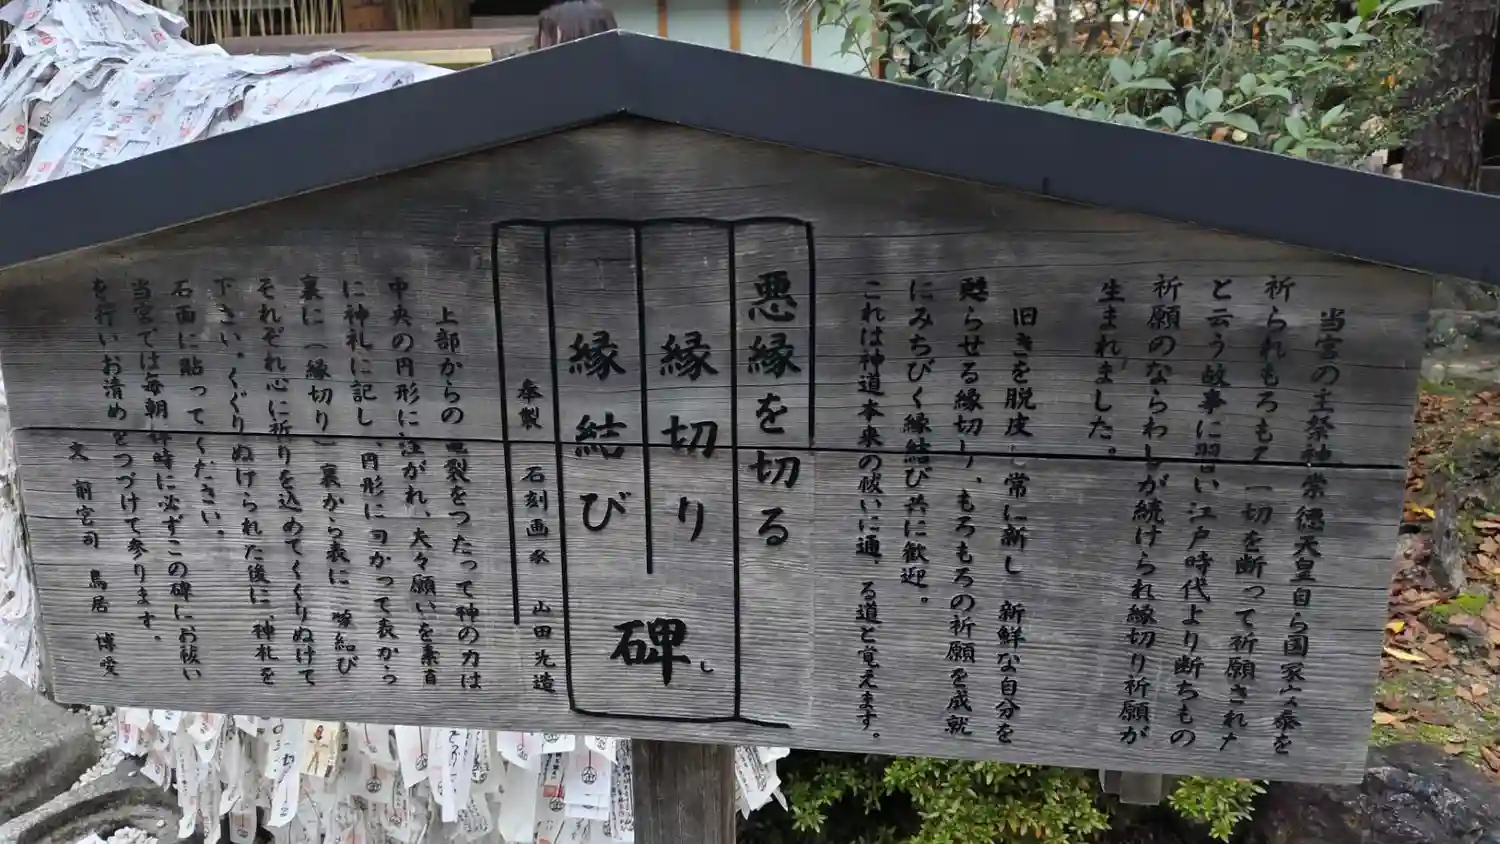 当宮の主祭神崇徳天皇自ら国家安泰を
祈られもろもろ一切を断って祈願された
と云う故事に習い江戸時代より断ちもの
祈願のならわしが続けられ縁切り祈願が
生まれました。
旧きを脱皮し常に新し 新鮮な自分を
甦らせる縁切り、もろもろの祈願を成就
にみちびく縁結び共に歓迎。
これは神道本来の祓いに通 る道と覚えます。
悪縁を切る
縁切り
縁結び
碑し
奉製 石刻画家 山田光造
上部からの亀裂をつたって神の力は
中央の円形に注がれ、大々願いを素直
に神礼に記し、円形に向かって表から
裏に(縁切り)裏から表に(縁結び
それぞれ心に祈りを込めてくぐりぬけて
下さい。くぐりぬけられた後に、神札を
石面に貼ってください。
当宮では毎朝 時に必ずこの碑にお祓い
を行いお清めをつづけて参ります。
文 前宮司 鳥居 博愛